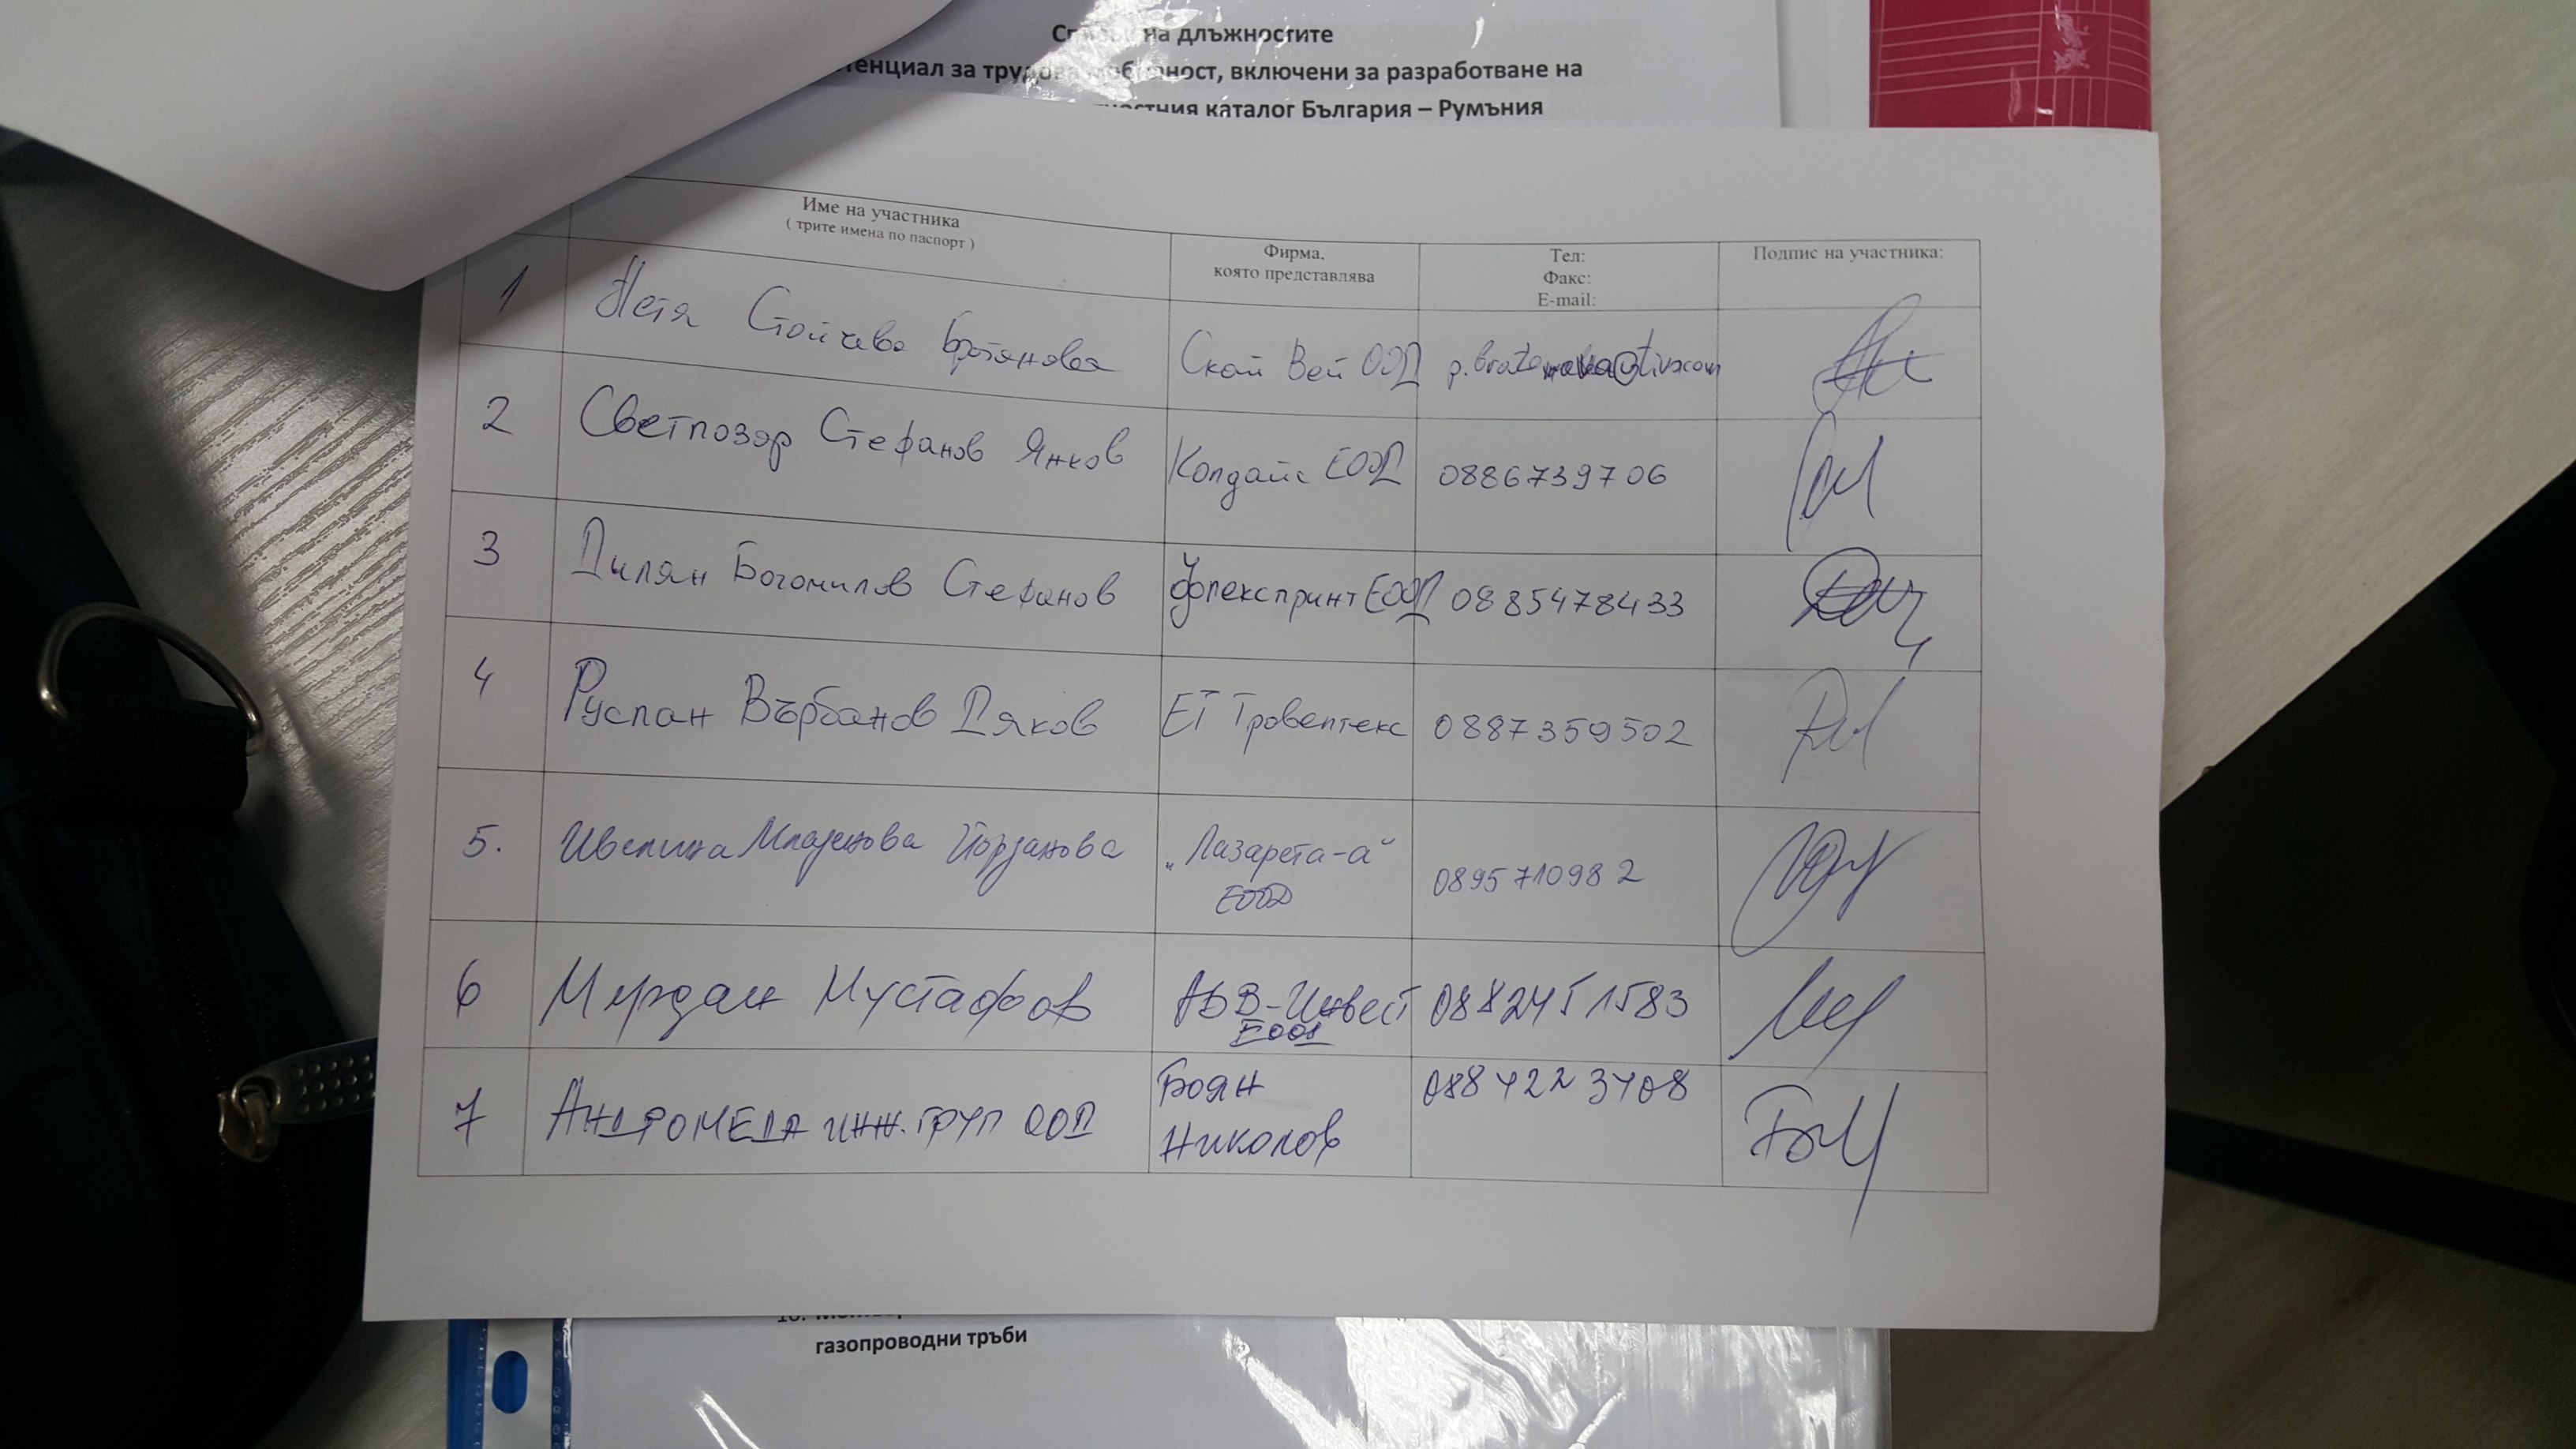 на длъжностите
за трудова мобилност, включени за разработване на
каталог България – Румъния
Име на участника
( трите имена по паспорт )
Фирма,
която представлява
Тел:
Факс:
E-mail:
Подпис на участника:
1 Петя Стойчева Братанова Скай Вей ООД
2 Светлозар Стефанов Янков Колдайс ЕООД 0886739706
3 Дилян Богомилов Стефанов Флекспринт ЕООД 0885478433
4 Руслан Върбанов Дяков ЕТ Тровелтекс 0887359502
5. Ивелина Младенова Йорданова „Лазарета-а“ 0895710982
ЕООД
6 Мирдан Мустафов АБВ-Инвест 0882451583
ЕООД
7 АНДРОМЕДА ИНЖ. ГРУП ООД Боян 0884223408
Николов
газопроводни тръби